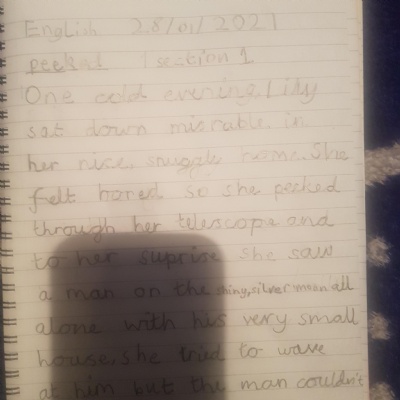 English 28/01/2021
peeked section 1
One cold evening, lily
sat down misrable in
her nice, snuggle rome. She
felt bored so she peeked
through her telescope and
to her suprise she saw
a man on the shing, silver moon all
alone with his very small
house, she tried to wave
at him but the man couldn't